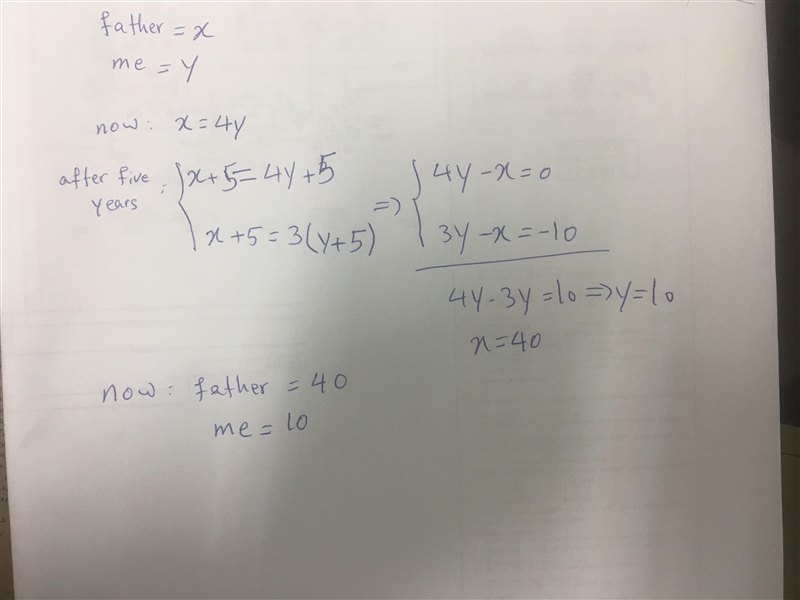 father = x
me = y
now: x=4y
after five years: x+5=4y+5 => 4y-x=0
x+5=3(y+5) 3y-x=-10
4y-3y=10=>y=10
x=40
now: father = 40
me = 10